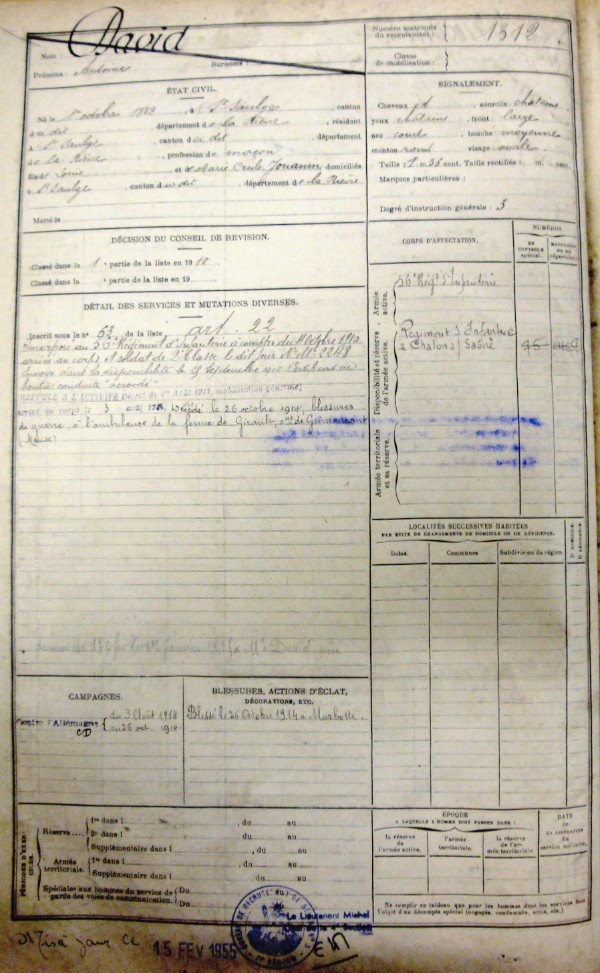 David
Numéro matricule du recrutement : 1312
Nom :
Surnoms :
Prénoms : Antoine
Classe de mobilisation :
ÉTAT CIVIL.
Né le 1er octobre 1889, à St Saulge, canton
dudit, département de la Nièvre, résidant
à St Saulge, canton dudit, département
de la Nièvre, profession de maçon
Louis et de Marie Cécile Jouanin, domiciliés
à St Saulge, canton dudit, département de la Nièvre
Marié le
SIGNALEMENT.
Cheveux et sourcils chatains
yeux chatains, front large
nez court, bouche moyenne
menton rond visage ovale
Taille : 1 m. 56 cent. Taille rectifiée : m. cent.
Marques particulières :
Degré d'instruction générale : 3
DÉCISION DU CONSEIL DE REVISION.
Classé dans la 1e partie de la liste en 1910
Classé dans la e partie de la liste en 19
CORPS D'AFFECTATION.
NUMÉROS
AU CONTRÔLE spécial.
Armée active.
56e Régt d'Infanterie
Disponibilité et réserve de l'armée active.
Régiment d'Infanterie
à Chalons s/ Saône
Armée territoriale et sa réserve.
DÉTAIL DES SERVICES ET MUTATIONS DIVERSES.
Inscrit sous le n° 62 de la liste art. 22
Incorporé au 56e Régiment d'Infanterie à compter du Octobre 1910
arrivé au corps et soldat de 2e Classe le dit jour No Mle 2248
Envoyé dans la disponibilité le 27 Septembre 1912 Certificat de
bonne conduite "accordé"
RAPPELÉ A L'ACTIVITÉ (Décret du 1er août 1914, mobilisation générale)
arrivé au corps le 3 août 1914. Décédé le 26 octobre 1914, blessures
de guerre, à l'ambulance de la ferme de Girault, cne de
(Meuse)
LOCALITÉS SUCCESSIVES HABITÉES
PAR SUITE DE CHANGEMENTS DE DOMICILE OU DE RÉSIDENCE.
Dates.
Communes
Subdivision de région.
D. DOMICILE.
R. RÉSIDENCE.
de 150 fr le Janvier 1915 à Mr David père
CAMPAGNES.
Contre l'Allemagne
CD
du 3 Août 1914
au 26 oct. 1914
BLESSURES, ACTIONS D'ÉCLAT,
DÉCORATIONS, ETC.
Blessé le 26 Octobre 1914 à Marbotte.
PÉRIODES D'EXERCICES.
Réserve
1re dans l , du au
2e dans l , du au
Supplémentaire dans l , du au
Armée territoriale.
1re dans l , du au
Supplémentaire dans l , du au
Spéciales aux hommes du service de garde des voies de communication.
Du au
Du au
ÉPOQUE
A LAQUELLE L'HOMME DOIT PASSER DANS :
la réserve de l'armée active.
l'armée territoriale.
la réserve de l'armée territoriale.
DATE
de la libération du service militaire.
Ne remplir ce tableau que pour les hommes dont les services font
l'objet d'un décompte spécial (engagés, condamnés, omis, etc.)
Le Lieutenant Michel
Mis à jour le
15 FEV 1955